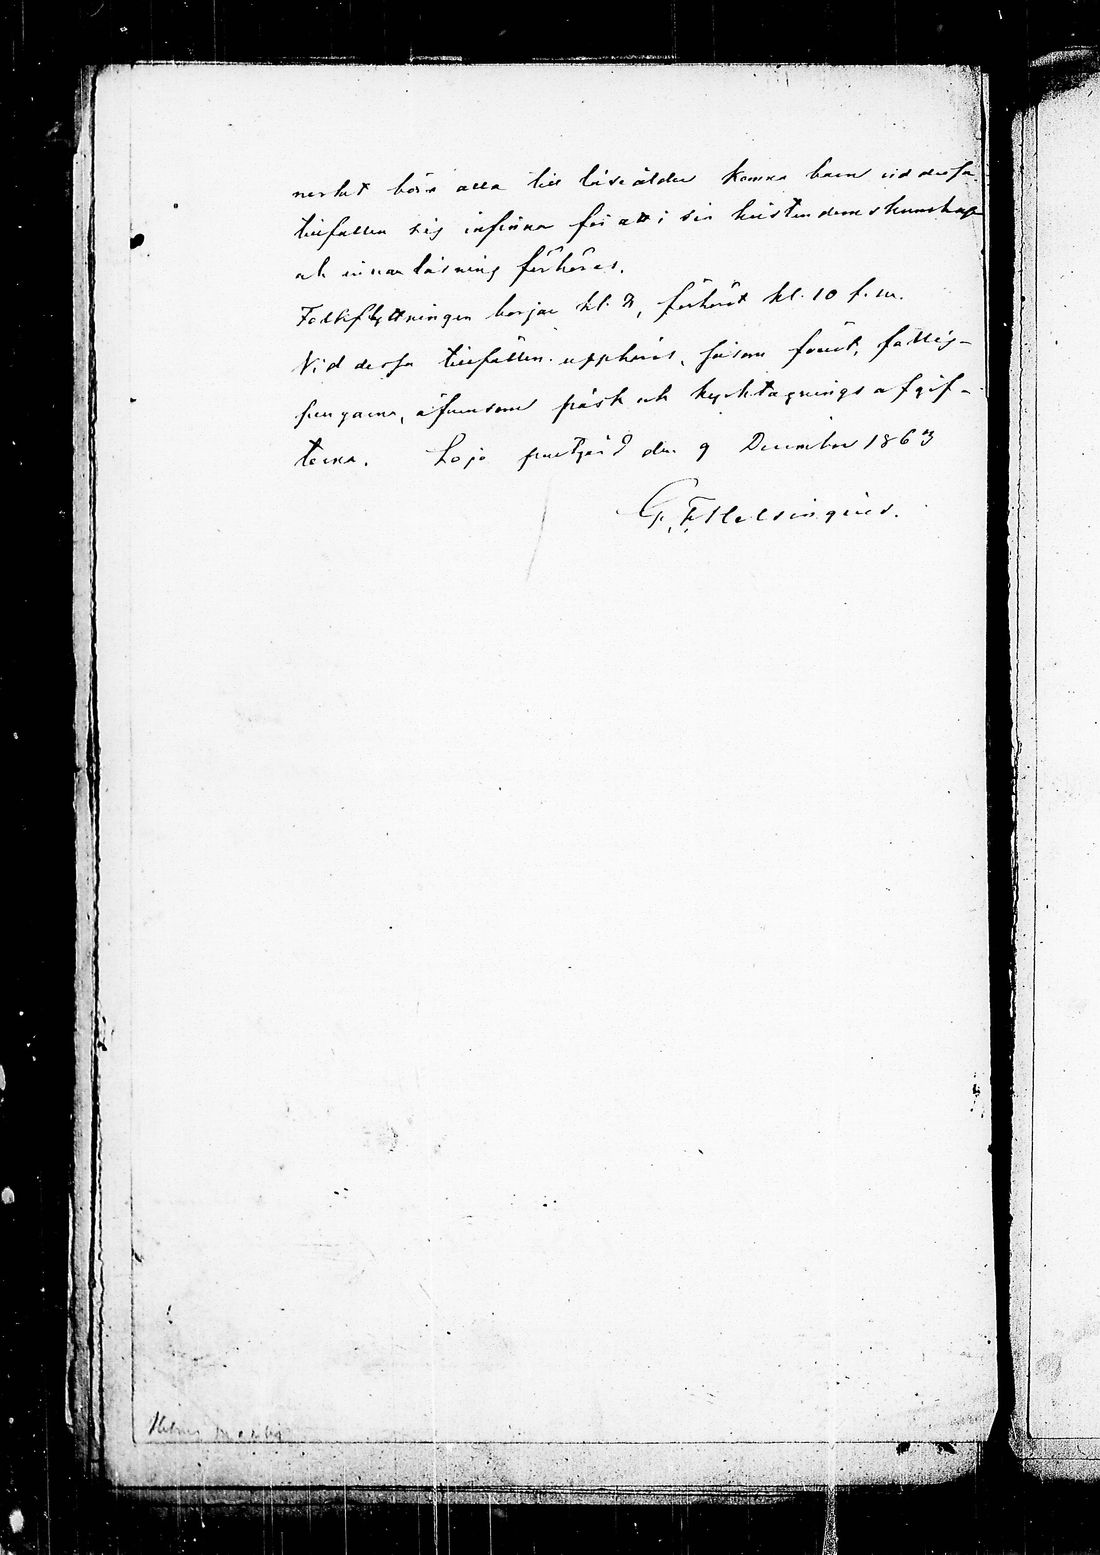 märkt böra alla till läseålder komna barn vid dessa
tillfällen sig infinna för att i sin kristendomskunskap
och innanläsning förhöras.
Folkskrifningen börjar kl. 8, förhöret kl. 10 f.m.
Vid dessa tillfällen uppbäres, såsom förut, fattig-
pengarne, äfvensom påsk och kyrktagnings afgif-
terna. Lojo prestgård den 9 December 1863
G. F. Helsingius.